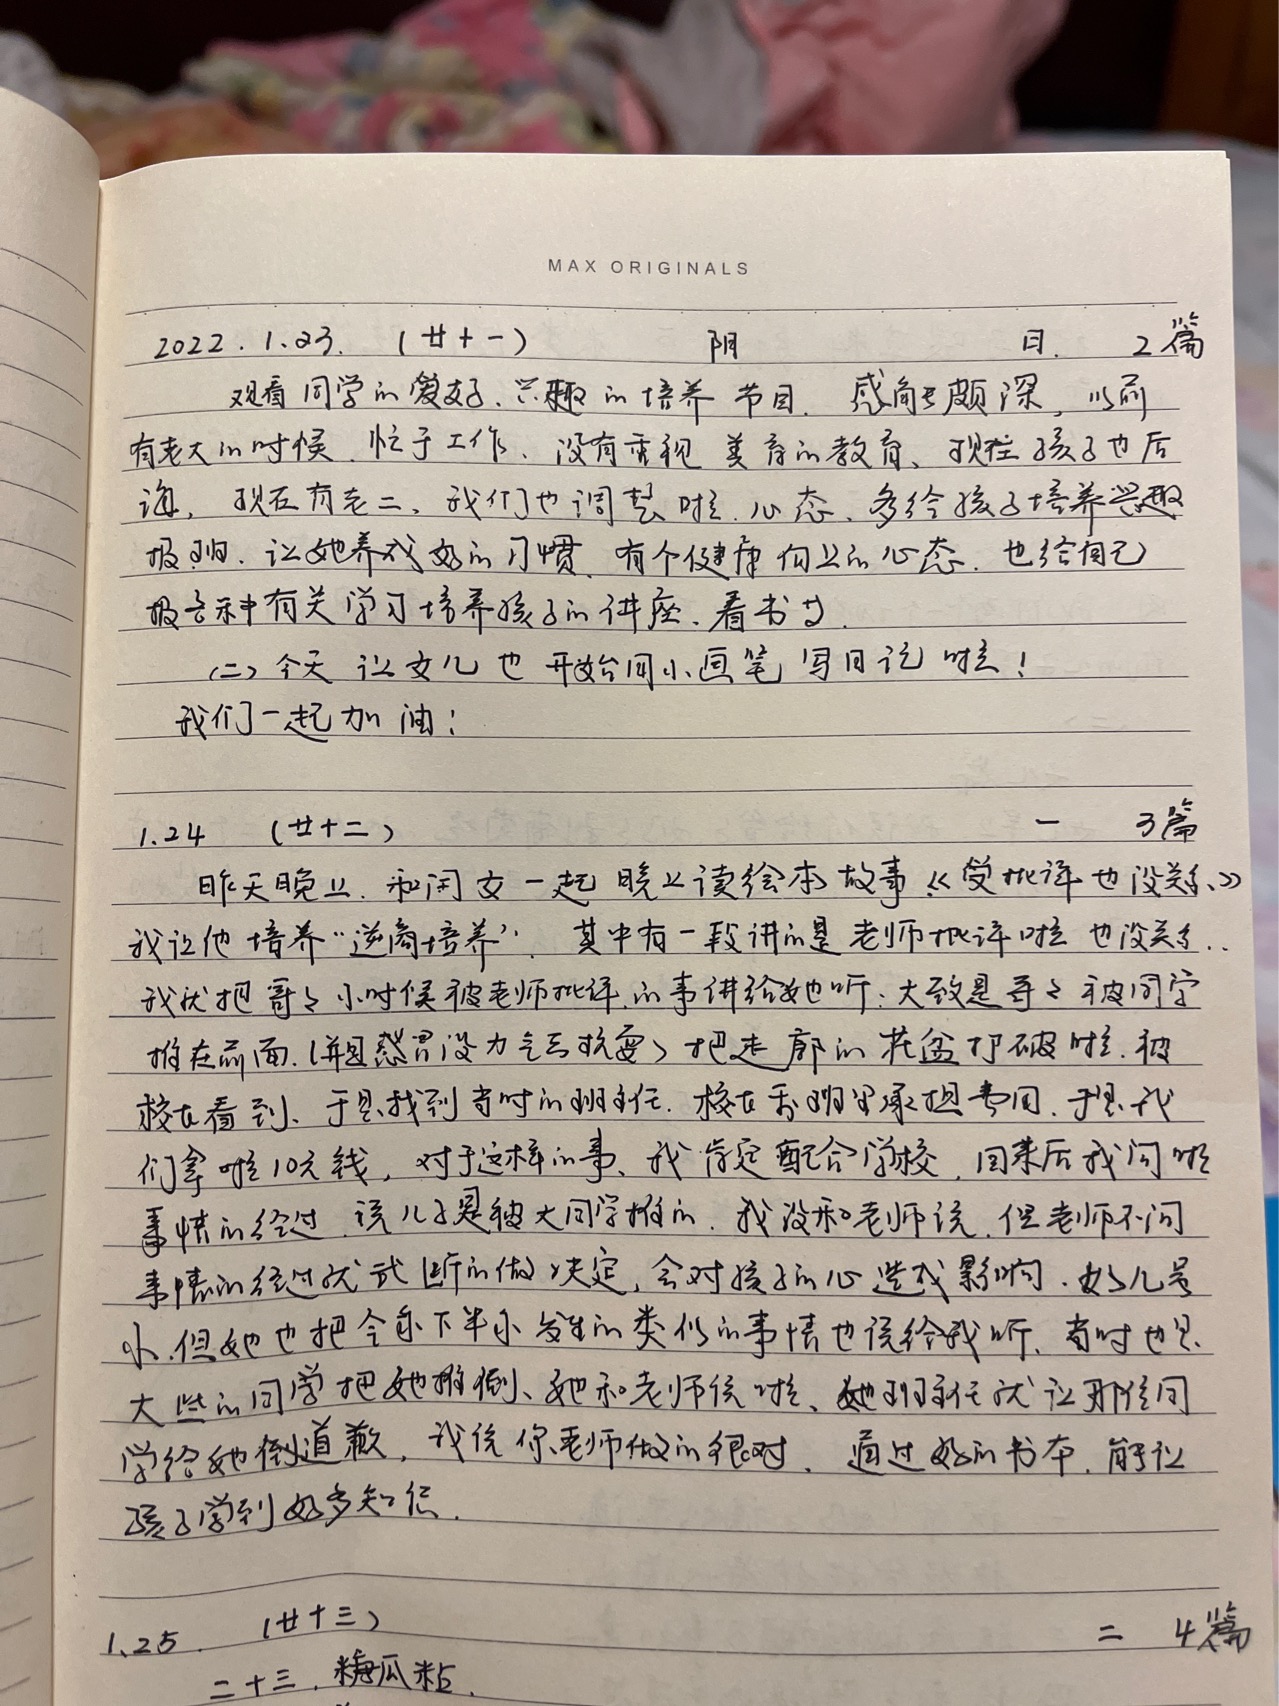 MAX ORIGINALS
2022.1.23. (廿十一) 阴 日. 2篇
观看同学的爱好、兴趣的培养 节目. 感触颇深, 以前
有老大的时候、忙于工作、没有重视 美育的教育、现在孩子也后
悔, 现在有老二、我们也调整啦心态、多给孩子培养兴趣
报班. 让她养成好的习惯、有个健康向上的心态. 也给自己
报各种有关学习培养孩子的讲座、看书
(二) 今天 让女儿也 开始用小画笔 写日记 啦!
我们一起加油!
1.24 (廿十二) 一 3篇
昨天晚上. 和闺女一起 晚上读绘本故事《受批评也没关系、》
我让他 培养“逆商培养”. 其中有一段讲的是 老师批评啦 也没关系..
我就把哥々小时候被老师批评.的事讲给她听、大致是哥々 被同学
推在前面.(并且惹男没力气 抗要) 把走廊的花盆打破啦. 被
校长看到、于是找到当时的班主任. 校长 班里承担费用. 于是我
们拿啦10元钱, 对于这样的事、我肯定配合学校. 回来后我问啦
事情的经过. 说儿子是被大同学推的. 我没和老师说. 但老师不问
事情的经过就武断的做决定, 会对孩子的心造成影响. 女儿虽
小.但她也把今年下半年发生的类似的事情也说给我听、当时也是
大些的同学把她推倒、她和老师说啦、她班主任就让那位同
学给她倒道歉, 我说你老师做的很对、通过好的书本. 能让
孩子学到好多知识.
1.25. (廿十三) 二 4篇
二十三. 糖瓜粘.